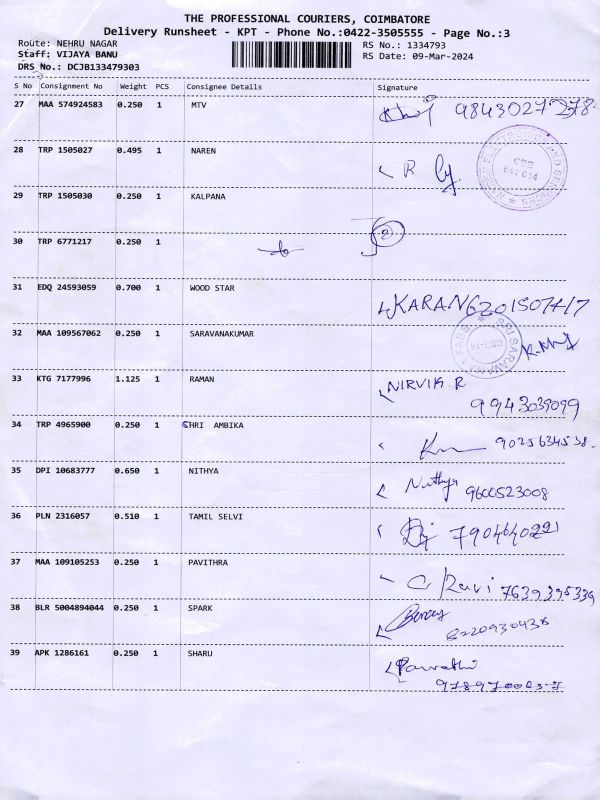 THE PROFESSIONAL COURIERS, COIMBATORE
Delivery Runsheet - KPT - Phone No.:0422-3505555 - Page No.:3
Route: NEHRU NAGAR RS No.: 1334793
Staff: VIJAYA BANU RS Date: 09-Mar-2024
DRS No.: DCJB133479303
S No Consignment No Weight PCS Consignee Details Signature
27 MAA 574924583 0.250 1 MTV
28 TRP 1505027 0.495 1 NAREN R
29 TRP 1505030 0.250 1 KALPANA
30 TRP 6771217 0.250 1 2
31 EDQ 24593059 0.700 1 WOOD STAR KARAN
32 MAA 109567062 0.250 1 SARAVANAKUMAR
33 KTG 7177996 1.125 1 RAMAN NIRVIK R
9943039099
34 TRP 4965900 0.250 1 SHRI AMBIKA 9025634538
35 DPI 10683777 0.650 1 NITHYA Nithya 9600523008
36 PLN 2316057 0.510 1 TAMIL SELVI
37 MAA 109105253 0.250 1 PAVITHRA C Ravi 7639395339
38 BLR 5004894044 0.250 1 SPARK
8220930438
39 APK 1286161 0.250 1 SHARU Parvathi